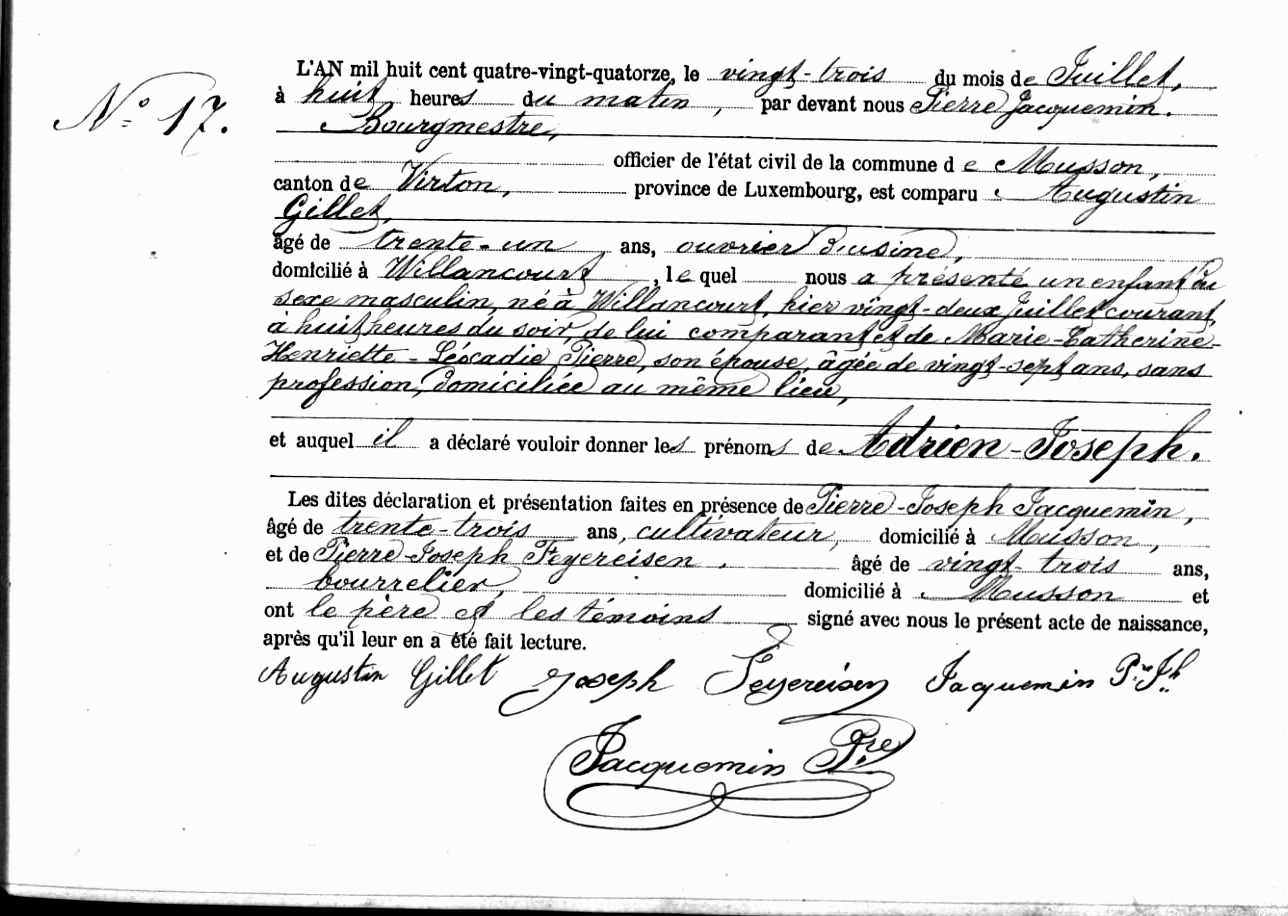 N° 17.
L'AN mil huit cent quatre-vingt-quatorze, le vingt-trois du mois de Juillet,
à huit heures du matin, par devant nous Pierre Jacquemin.
Bourgmestre,
officier de l'état civil de la commune de Musson,
canton de Virton, province de Luxembourg, est comparu Augustin
Gillet,
âgé de trente-un ans, ouvrier d'usine,
domicilié à Willancourt, lequel nous a présenté un enfant du
sexe masculin, né à Willancourt, hier vingt-deux Juillet courant,
à huit heures du soir, de lui comparant et de Marie-Catherine-
Henriette-Léocadie Pierre, son épouse, âgée de vingt-sept ans, sans
profession, domiciliée au même lieu,
et auquel il a déclaré vouloir donner les prénoms de Adrien-Joseph.
Les dites déclaration et présentation faites en présence de Pierre-Joseph Jacquemin,
âgé de trente-trois ans, cultivateur, domicilié à Musson,
et de Pierre-Joseph Feyereisen. âgé de vingt-trois ans,
bourrelier, domicilié à Musson et
ont le père et les témoins signé avec nous le présent acte de naissance,
après qu'il leur en a été fait lecture.
Augustin Gillet Joseph Feyereisen Jacquemin Pre Jh
Jacquemin Pre